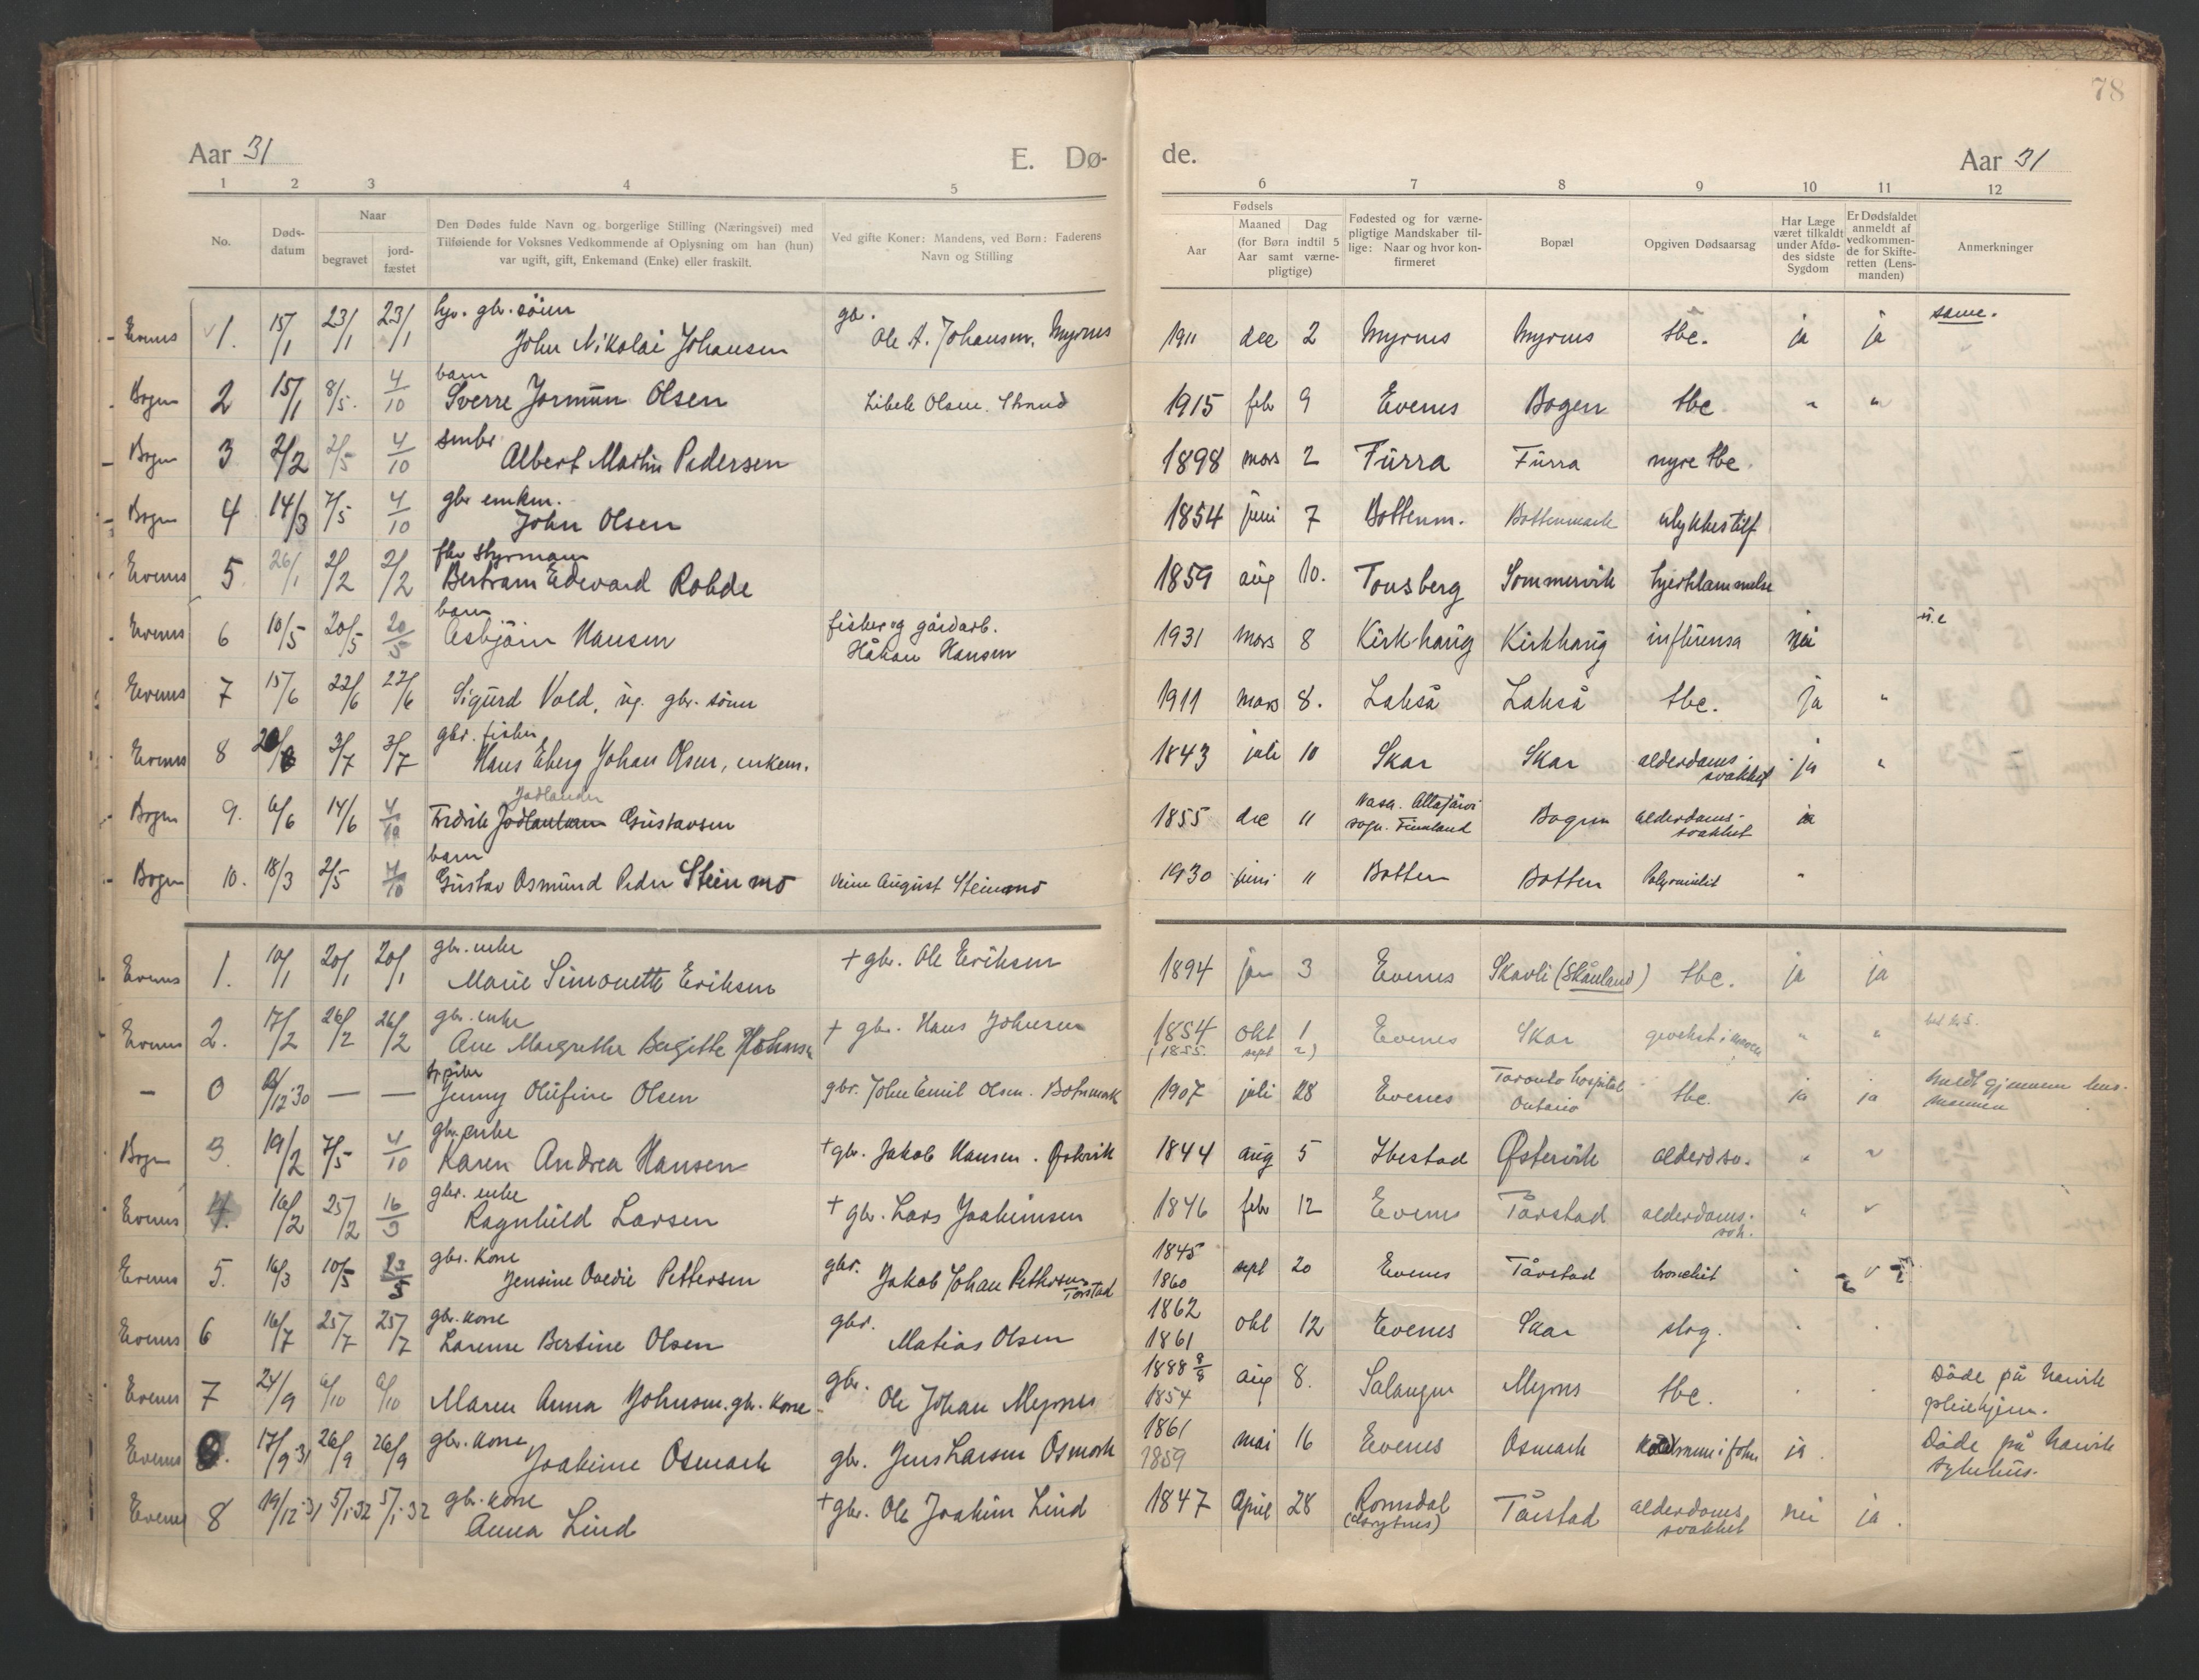 78
Aar 31 E. Dø- de. Aar 31
1 2 3 4 5 6 7 8 9 10 11 12
No.
Døds-
datum
Naar
begravet
jord-
fæstet
Den Dødes fulde Navn og borgerlige Stilling (Næringsvei) med
Tilføiende for Voksnes Vedkommende af Oplysning om han (hun)
var ugift, gift, Enkemand (Enke) eller fraskilt.
Ved gifte Koner: Mandens, ved Børn: Faderens
Navn og Stilling
Fødsels
Aar
Maaned Dag
(for Børn indtil 5
Aar samt værne-
pligtige)
Fødested og for værne-
pligtige Mandskaber til-
lige: Naar og hvor kon-
firmeret
Bopæl
Opgiven Dødsaarsag
Har Læge
været tilkaldt
under Afdø-
des sidste
Sygdom
Er Dødsfaldet
anmeldt af
vedkommen-
de for Skifte-
retten (Lens-
manden)
Anmerkninger
gbr. sönn gbr. same.
Evenes 1. 15/1 23/1 23/1 John Nikolai Johansen Ole A. Johansen, Myrnes 1911 dec 2 Myrnes Myrnes tbc. ja ja
barn
Bogen 2 15/1 8/5. 4/10 Sverre Jormun Olsen Olsen. Strand 1915 febr 9 Evenes Bogen tbc " "
Bogen 3 2/2 2/5 4/10 Albert Martin Pedersen 1898 mars 2 Furra Furra nyre tbc.
gbr enkm.
Bogen 4 14/3 7/5 4/10 John Olsen 1854 juni 7 Bottenm. Bottenmark ulykkestilf
fhv styrmann
Evenes 5 26/1 2/2 2/2 Bertram Edevard Rohde 1859 aug 10. Tønsberg Sommervik hjerteklammelse
barn fisker og gårdarb.
Evenes 6 10/5 20/5 20/5 Asbjörn Hansen Håkon Hansen 1931 mars 8 Kirkhaug Kirkhaug influensa nei
Evenes 7 15/6 22/6 22/6 Sigurd Vold, ug. gbr. sönn 1911 mars 8. Lakså Lakså tbc. ja "
gbr. fisker
Evenes 8 3/7 3/7 Hans Eberg Johan Olsen, enkem. 1843 juli 10 Skar Skar alderdoms-
svakhet ja "
Jodlander
Bogen 9. 6/6 14/6 4/10 Fredrik Gustavsen 1855 dec 11 Vasa. Alajärvi
sogn. Finnland Bogen alderdoms-
svakhet ja
barn
Bogen 10. 18/3 2/5 4/10 Gustav Osmund Peder Steinmo August Steinmo 1930 juni 11 Botten Botten "
gbr. enke
Evenes 1. 10/1 20/1 20/1 Marie Simonette Eriksen + gbr. Ole Eriksen 1894 jan 3 Evenes Skavli (Skånland) tbc. ja ja
gbr. enke
Evenes 2. 17/2 26/2 26/2 Ane Margrethe Bergitte Johansen + gbr. Hans Johnsen 1854 okt 1 Evenes Skar " "
(1855. sept 2)
— 0 /12 30 — — Jenny Olufine Olsen gbr. John Emil Olsen. Botnmark 1907 juli 28 Evenes Toronto hospital
Ontario tbc. ja ja meldt gjennem lens-
mannen
gbr. enke
Bogen 3. 19/2 7/5 4/10 Karen Andrea Hansen + gbr. Jakob Hansen. Østervik 1844 aug 5 Ibestad Østervik alderdsv. "
gbr. enke
Evenes 4. 16/2 25/2 16/3 Ragnhild Larsen + gbr. Lars Joakimsen 1846 febr 12 Evenes Tårstad alderdoms-
svh. "
gbr. Kone gbr. 1845
Evenes 5. 16/3 10/5 23/5 Jensine Ovedie Pettersen Jakob Johan Pettersen
Torstad 1860 sept 20 Evenes Tårstad bronchit
gbr. Kone gbr. 1862
Evenes 6 16/7 25/7 25/7 Larense Bertine Olsen Matias Olsen 1861 okt 12 Evenes Skar slag.
gbr. 1888 8/8
Evenes 7 24/9 6/10 6/10 Maren Anna Johnsen. gbr. Kone Ole Johan Myrnes 1854 aug 8. Salangen Myrnes tbc. Döde på Narvik
pleiehjem.
gbr. Kone 1861
Evenes 17/9 31 26/9 26/9 Joakime Osmark gbr. Jens Larsen Osmark 1859 mai 16 Evenes Osmark ja. Döde på Narvik
sykehus.
gbr. kone
Evenes 8 19/12 31 5/1-32 5/1-32 Anna Lind + gbr. Ole Joakim Lind 1847 April 28 Romsdal Tårstad alderdoms
svakhet nei ja.